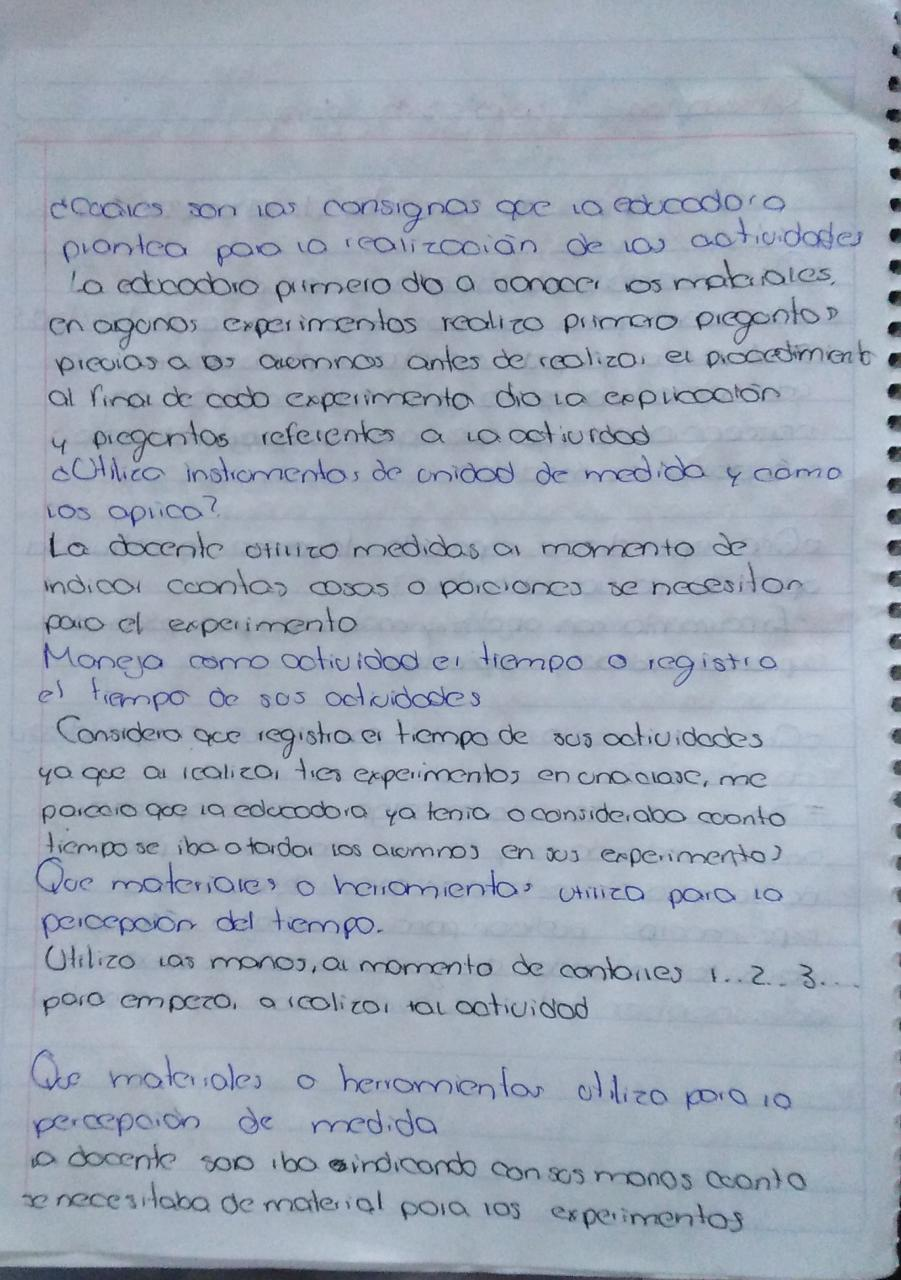 ¿Cuáles son las consignas que la educadora
plantea para la realización de las actividades
La educadora primero dio a conocer los materiales,
en agunos experimentos realizo primero preguntas
previas a los alumnos antes de realizar el procediment
al final de cada experimento dio la explicación
y preguntas referentes a la actividad
¿Utilica instrumentos de unidad de medida y cómo
los aplica?
La docente utilizo medidas al momento de
indicar cuantas cosas o porciones se necesitan
para el experimento
Maneja como actividad el tiempo o registra
el tiempo de sus actvidades
Considero que registra el tiempo de sus actividades
ya que al realizar tres experimentos en una clase, me
parecio que la educadora ya tenia o consideraba cuanto
tiempo se iba a tardar los alumnos en sus experimentos
Que materiales o herramientas utiliza para la
percepción del tiempo.
Utilizo las manos, al momento de contarles 1..2..3....
para empezar a realizar tal actividad
Que materiales o herramientas utiliza para la
percepción de medida
la docente solo iba indicando con sus manos cuanto
se necesitaba de material para los experimentos